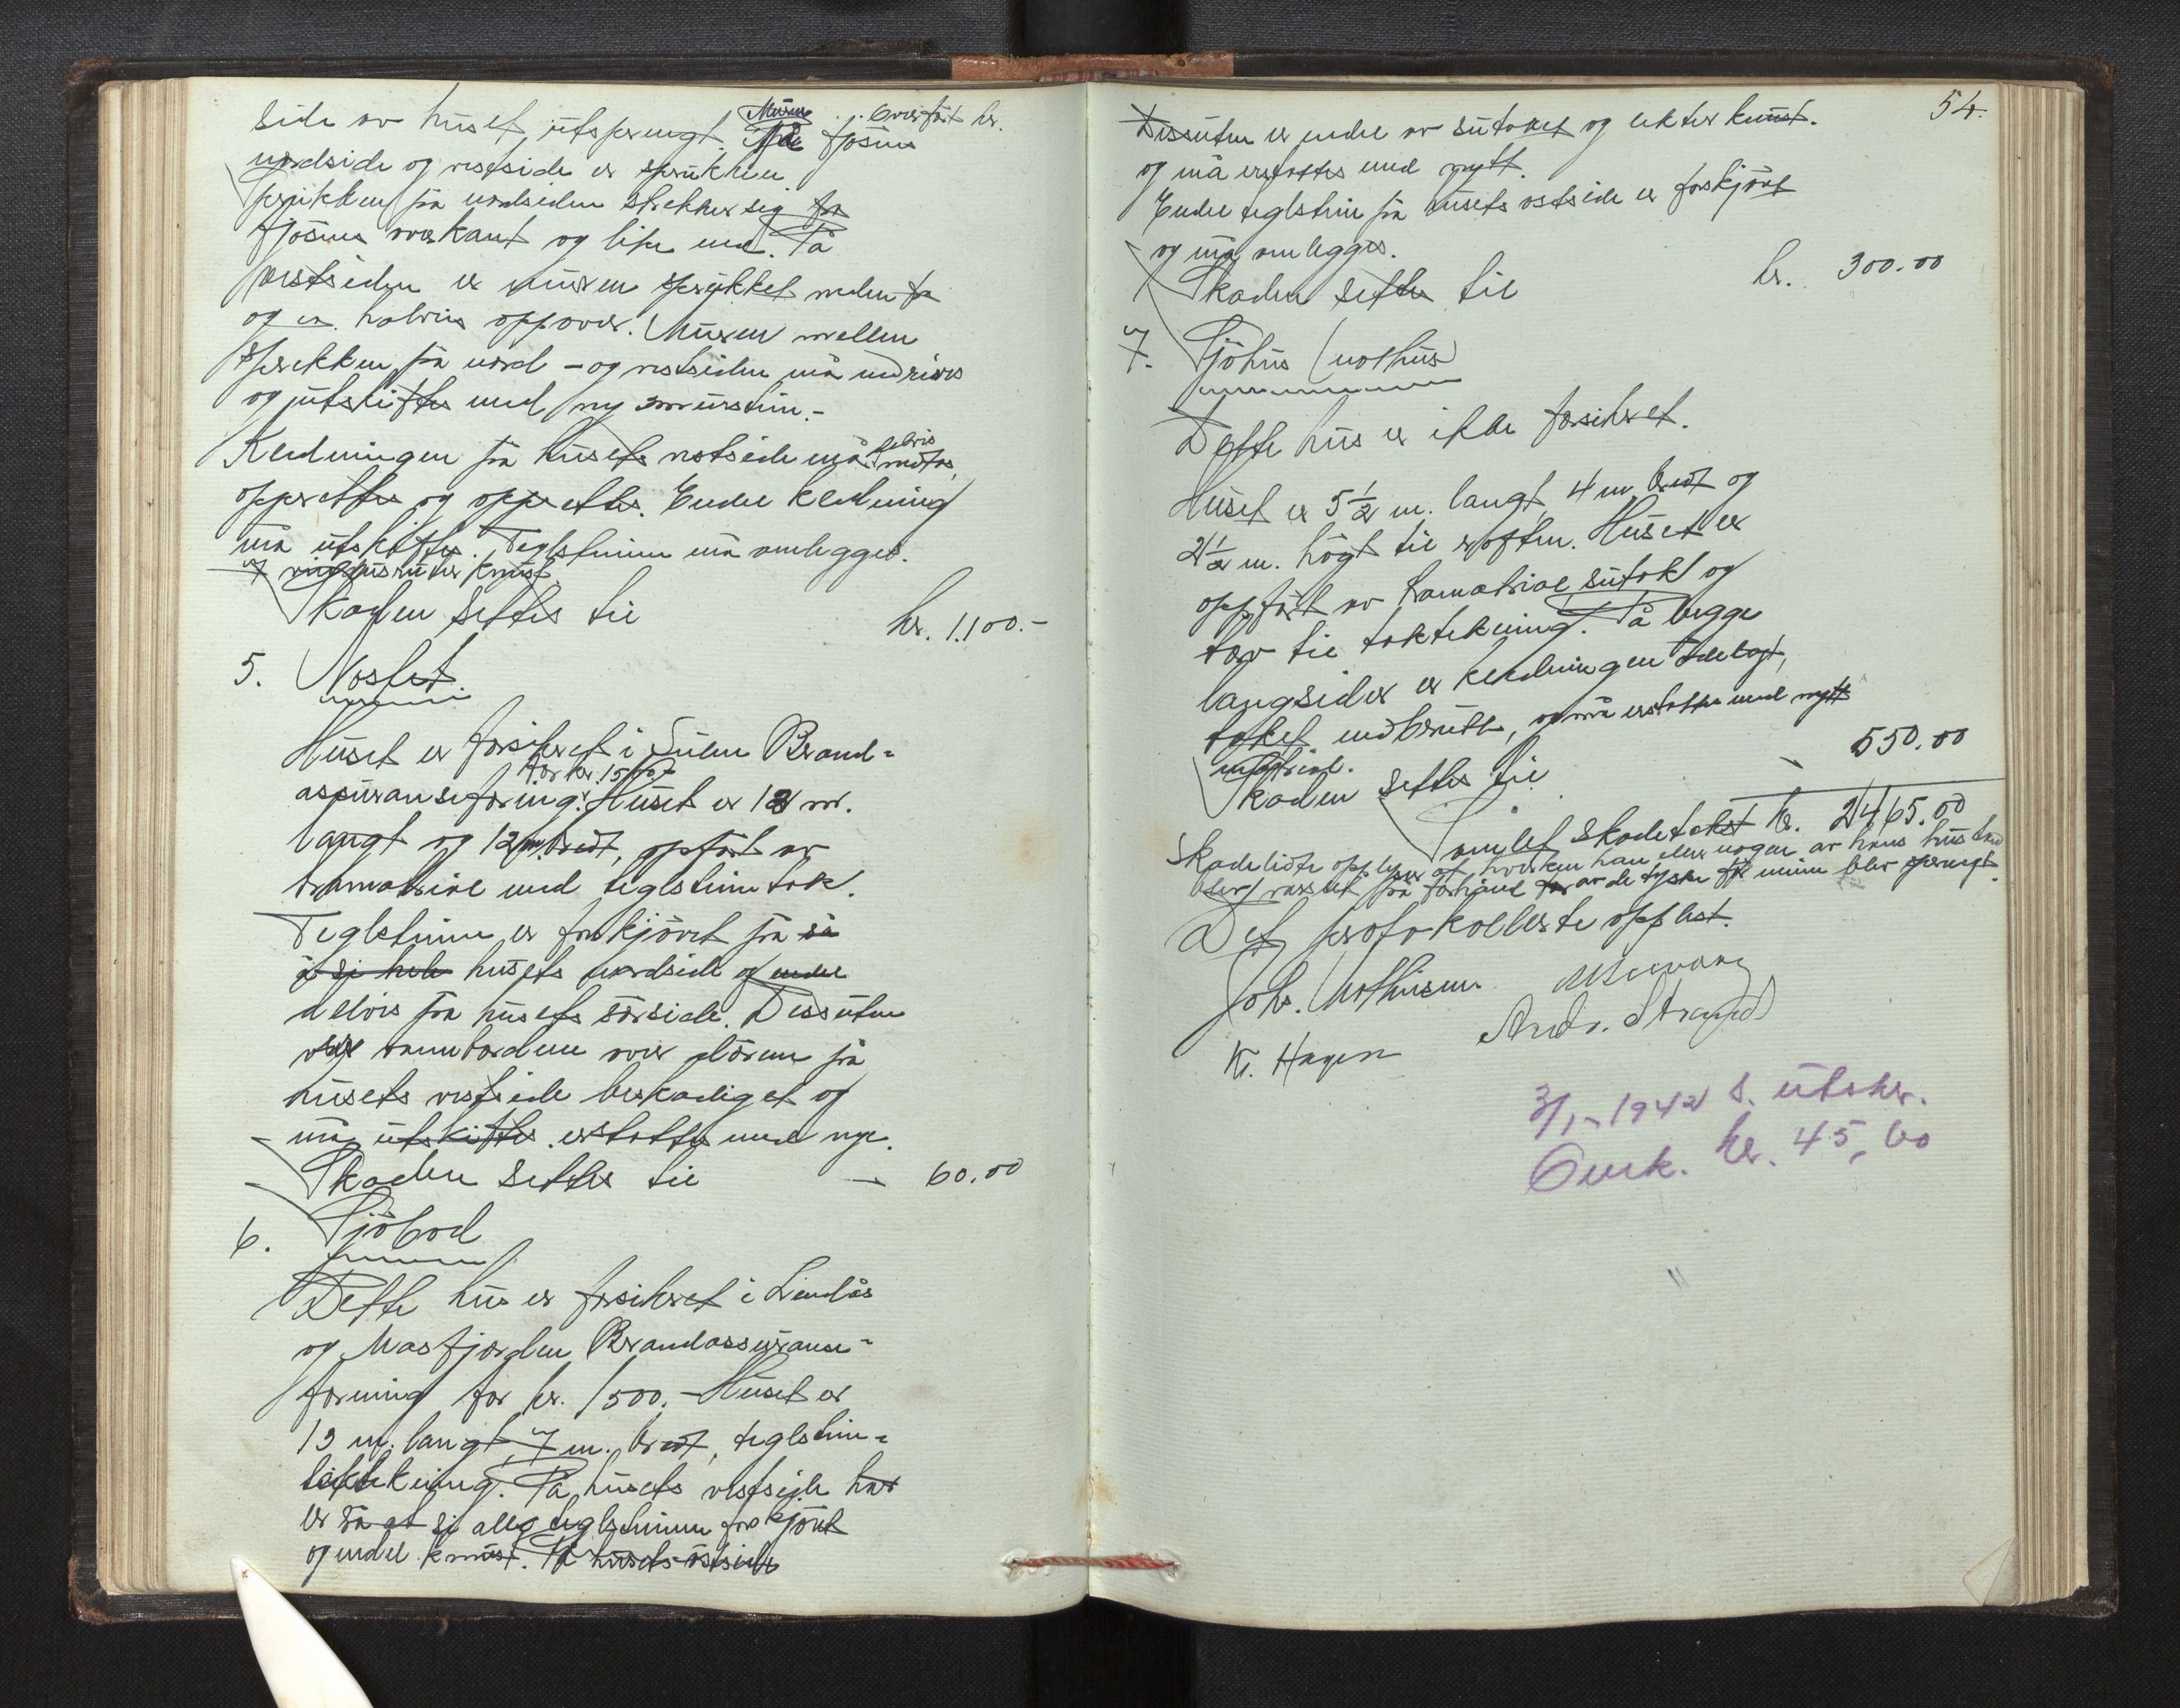 Overført kr.
side av huset utsprengt. Muren På fjøsets
nordside og vestside er sprukken
Sprekken på nordsiden strekker sig fra
fjøsets overkant og like ned. På
vestsiden er muren sprukket neden fra
og ca. halvveis oppover. Muren mellem
sprekken på nord- og vestsiden må nedrives
og utskiftes med ny murstein.-
Kledningen på husets vestside må delvis nedtas,
opprettes og oppsettes. Endel kledning
må utskiftes. Teglsteinene må omlegges.
7 vindusruter knust.
Skaden settes til kr. 1.100.-
5. Nostet.
Huset er forsikret i Sulen Brand-
assuranseforening for kr. 1500.- Huset er 12 m.
langt og 12 m. bredt, opført av
trematerial med teglsteintak.
Teglsteinene er forskjøvet på så
å si hele husets nordside og endel
delvis på husets sørside. Dessuten
er vannbordene over dørene på
husets vestside beskadiget og
må utskiftes erstattes med nye.
Skaden settes til - 60.00
6. Sjøbod
Dette hus er forsikret i Lindås
og Masfjorden Brandassuranse-
forening for kr. 1500.- Huset er
13 m. langt, 7 m. bredt, teglstein-
taktekning. På husets vestside har
er så at si alle teglsteinene forskjøvet
og endel knust. På husets østside
54.
Dessuten er endel av sutaket og lekter knust.
og må erstattes med nytt.
Endel teglstein på husets østside er forskjøvet
og må omlegges.
Skaden settes til kr. 300.00
7. Sjøhus (nothus)
Dette hus er ikke forsikret.
Huset er 5 1/2 m. langt, 4 m. bredt og
2 1/2 m. høgt til røsten. Huset er
oppført av trematrial sutak og
torv til taktekning. På begge
langsider er kledningen ødelagt,
taket nedbrutt, og må erstattes med nytt
material.
Skaden settes til - 550.00
Samlet skadetakst kr. 2465.00
Skadelidte opplyser at hverken han eller nogen av hans husstand
blev varslet på forhånd av de tyske før minen blev sprengt.
Det protokollerte opplest.
Johs. Mathisen.
K. Hagen Andr. Strand
3/1- 1942 s. utskr.
Omk. kr. 45,60